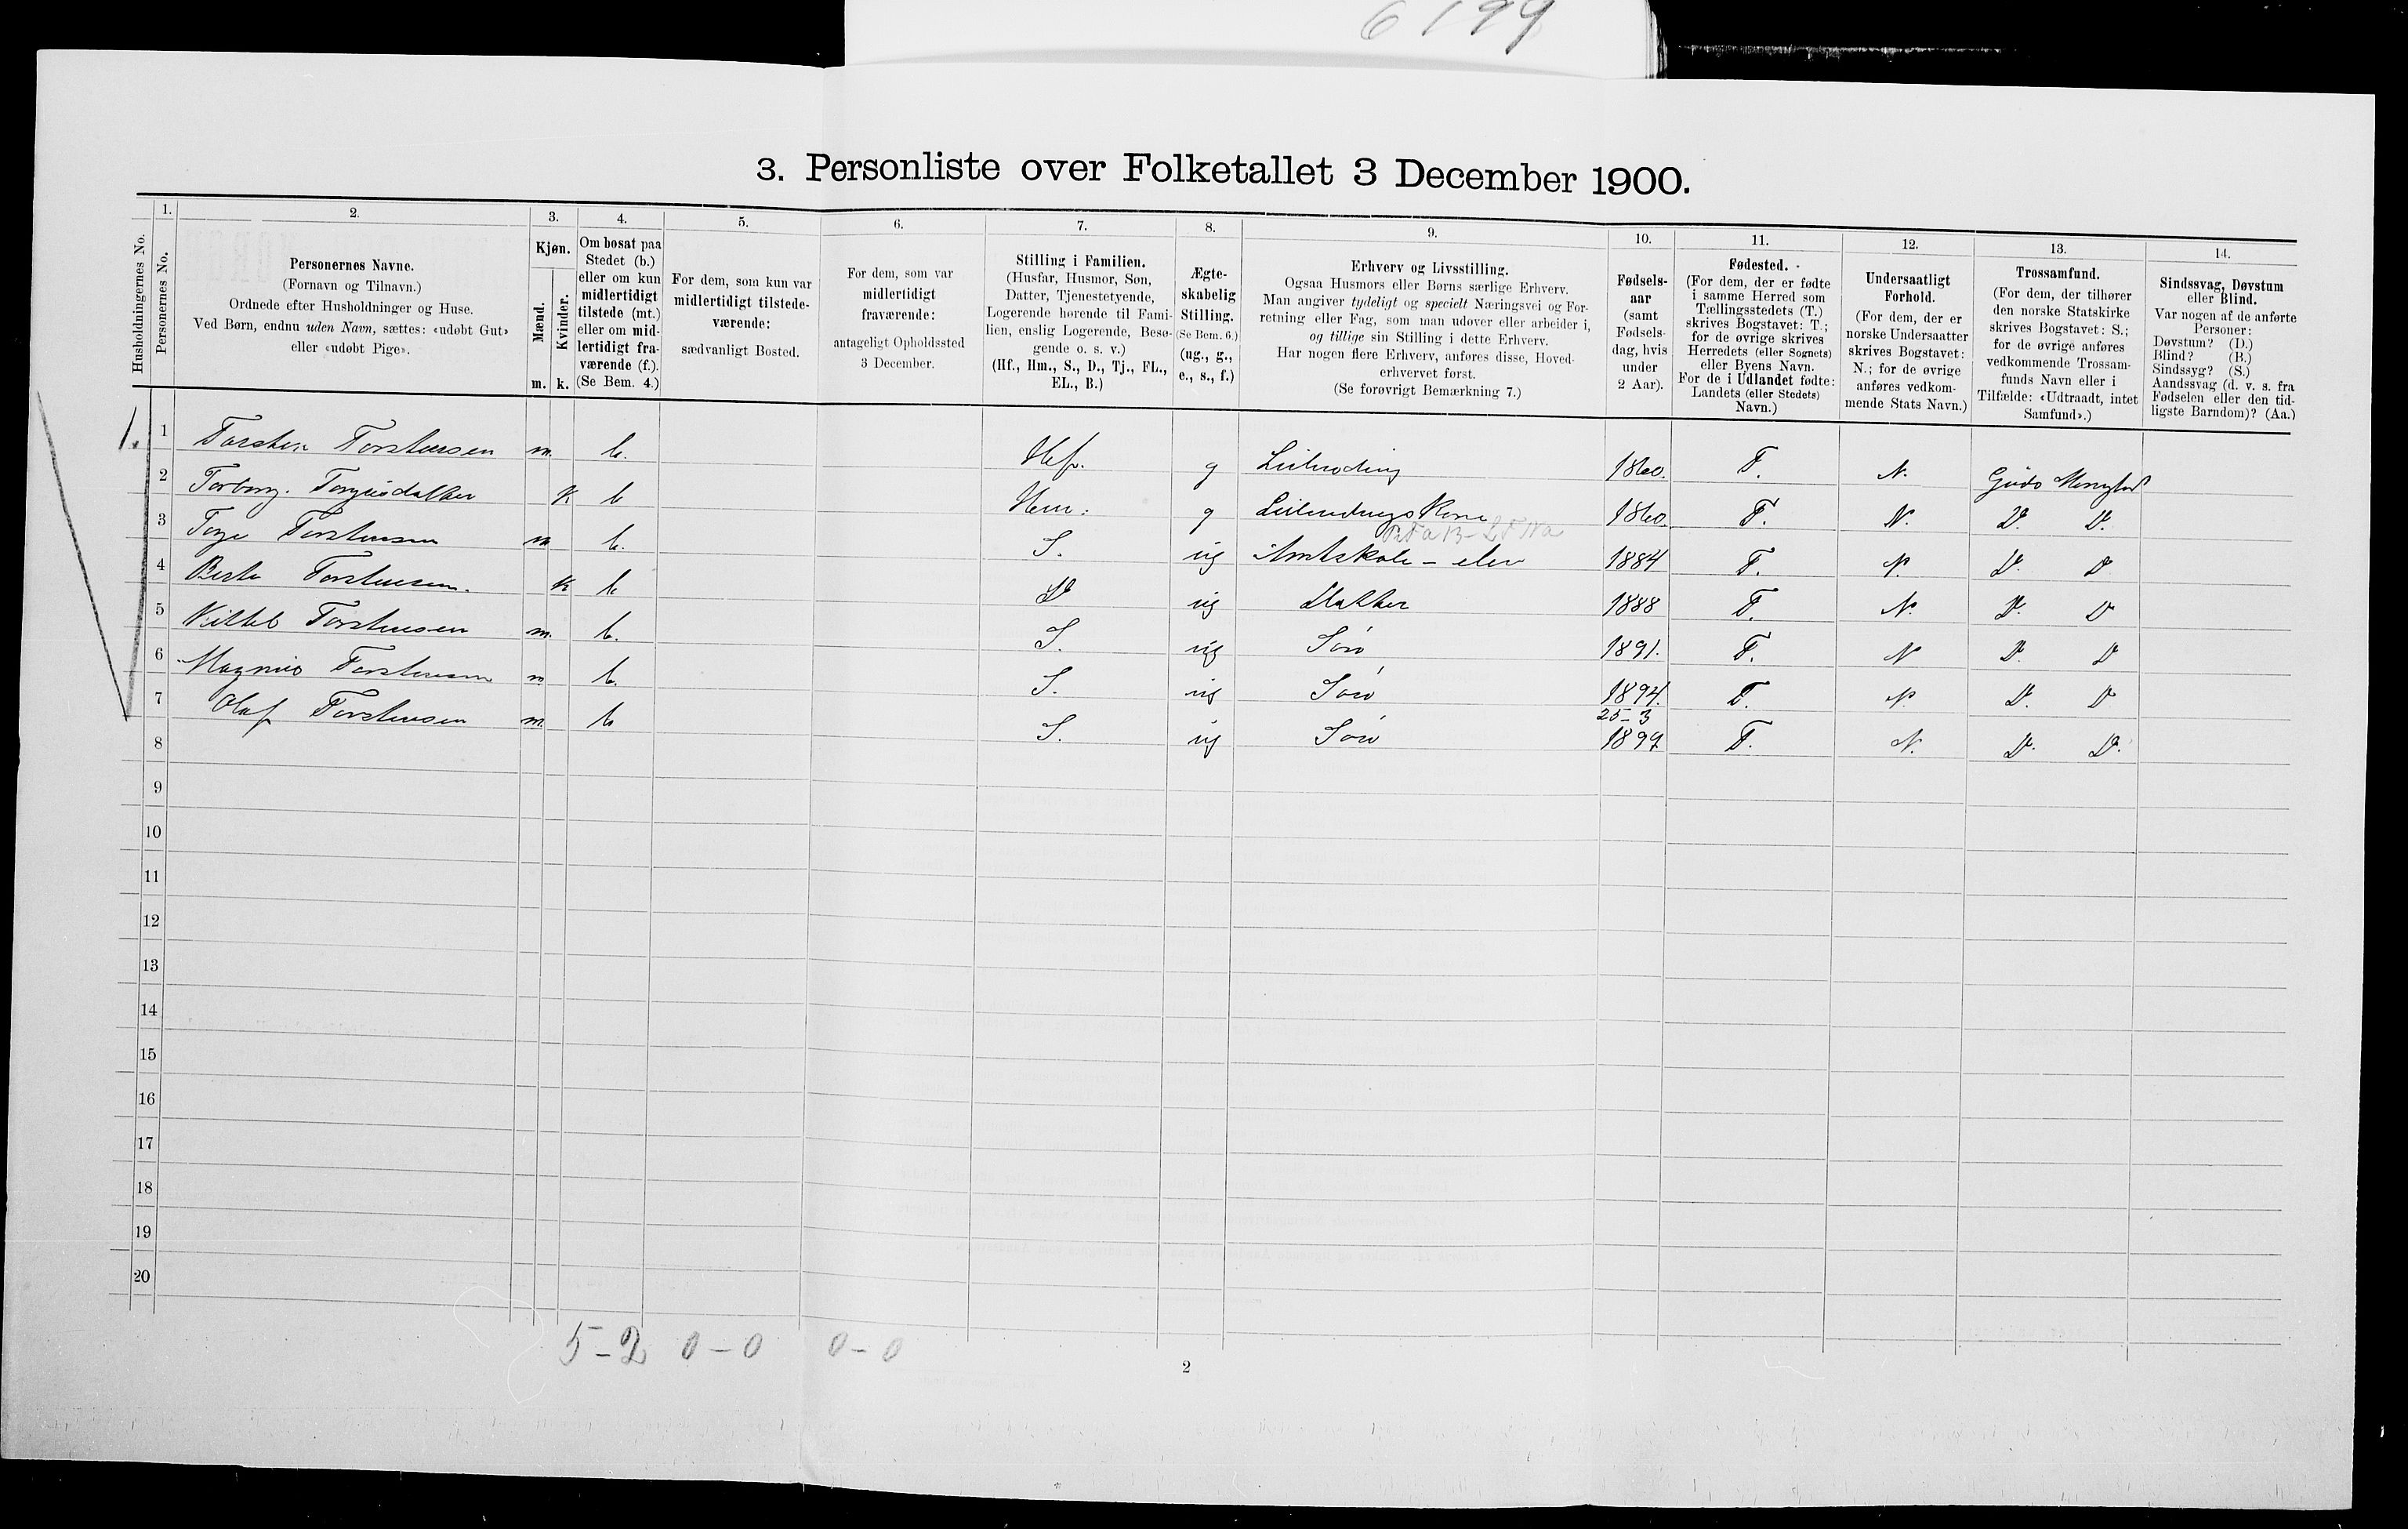 6199
3. Personliste over Folketallet 3 December 1900.
1. 2. 3. 4. 5. 6. 7. 8. 9. 10. 11. 12. 13. 14.
Husholdningernes No.
Personernes No.
Personernes Navne.
(Fornavn og Tilnavn.)
Ordnede efter Husholdninger og Huse.
Ved Børn, endnu uden Navn, sættes: «udøbt Gut»
eller «udøbt Pige».
Kjøn.
Mænd.
Kvinder.
m. k.
Om bosat paa
Stedet (b.)
eller om kun
midlertidigt
tilstede (mt.)
eller om mid-
lertidigt fra-
værende (f.).
(Se Bem. 4.)
For dem, som kun var
midlertidigt tilstede-
værende:
sædvanligt Bosted.
For dem, som var
midlertidigt
fraværende:
antageligt Opholdssted
3 December.
Stilling i Familien.
(Husfar, Husmor, Søn,
Datter, Tjenestetyende,
Logerende hørende til Fami-
lien, enslig Logerende, Besø-
gende o. s. v.)
(Hf., Hm., S., D., Tj., FL.,
EL., B.)
Ægte-
skabelig
Stilling.
(Se Bem. 6.)
(ug., g.,
e., s., f.)
Erhverv og Livsstilling.
Ogsaa Husmors eller Børns særlige Erhverv.
Man angiver tydeligt og specielt Næringsvei og For-
retning eller Fag, som man udøver eller arbeider i,
og tillige sin Stilling i dette Erhverv.
Har nogen flere Erhverv, anføres disse, Hoved-
erhvervet først.
(Se forøvrigt Bemærkning 7.)
Fødsels-
aar
(samt
Fødsels-
dag, hvis
under
2 Aar).
Fødested.
(For dem, der er fødte
i samme Herred som
Tællingsstedets (T.)
skrives Bogstavet: T.;
for de øvrige skrives
Herredets (eller Sognets)
eller Byens Navn.
For de i Udlandet fødte:
Landets (eller Stedets)
Navn.)
Undersaatligt
Forhold.
(For dem, der er
norske Undersaatter
skrives Bogstavet:
N.; for de øvrige
anføres vedkom-
mende Stats Navn.)
Trossamfund.
(For dem, der tilhører
den norske Statskirke
skrives Bogstavet: S.;
for de øvrige anføres
vedkommende Trossam-
funds Navn eller i
Tilfælde: «Udtraadt, intet
Samfund».)
Sindssvag, Døvstum
eller Blind.
Var nogen af de anførte
Personer:
Døvstum? (D.)
Blind? (B.)
Sindssyg? (S.)
Aandssvag (d. v. s. fra
Fødselen eller den tid-
ligste Barndom)? (Aa.)
1. 1 Torsten Torstensen m. b. Hf. g Leilænding 1860. T. N. Guds Menighed
2 Torborg. Torgusdatter K b Hm. g Leilendings Kone 1860. T. N. D. D.
3 Torge Torstensen m b. S. ug Amtskole-elev 1884 T. N. D. D
4 Berte Torstensen. K b D ug Datter 1888 T. N. D. D
5 Kittel Torstensen m. b. S. ug Søn 1891. T. N D. D
6 Magnus Torstensen m b. S. ug Søn 1894. T. N D. D
25-3
7 Olaf Torstensen m. b S. ug Søn 1899 T. N. D. D.
8
9
10
11
12
13
14
15
16
17
18
19
20
5-2 0-0 0-0
2